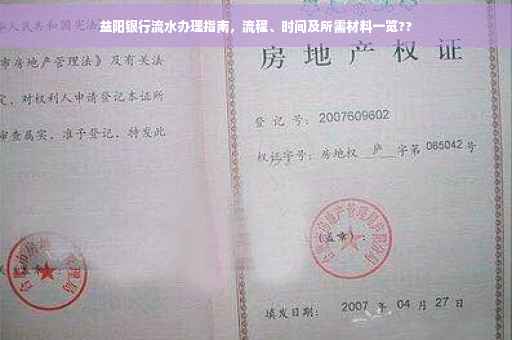 益阳银行流水办理指南，流程、时间及所需材料一览??
人民共和国宪法
市房地产管理法》及有关
定，对权利人申请登记本证所
审查属实，准予登记，特发此
房地产权证
登记号：2007609602
权证字号：房地权 庐 字第 085042 号
(盖章)：
填发日期：2007 年 04 月 27 日